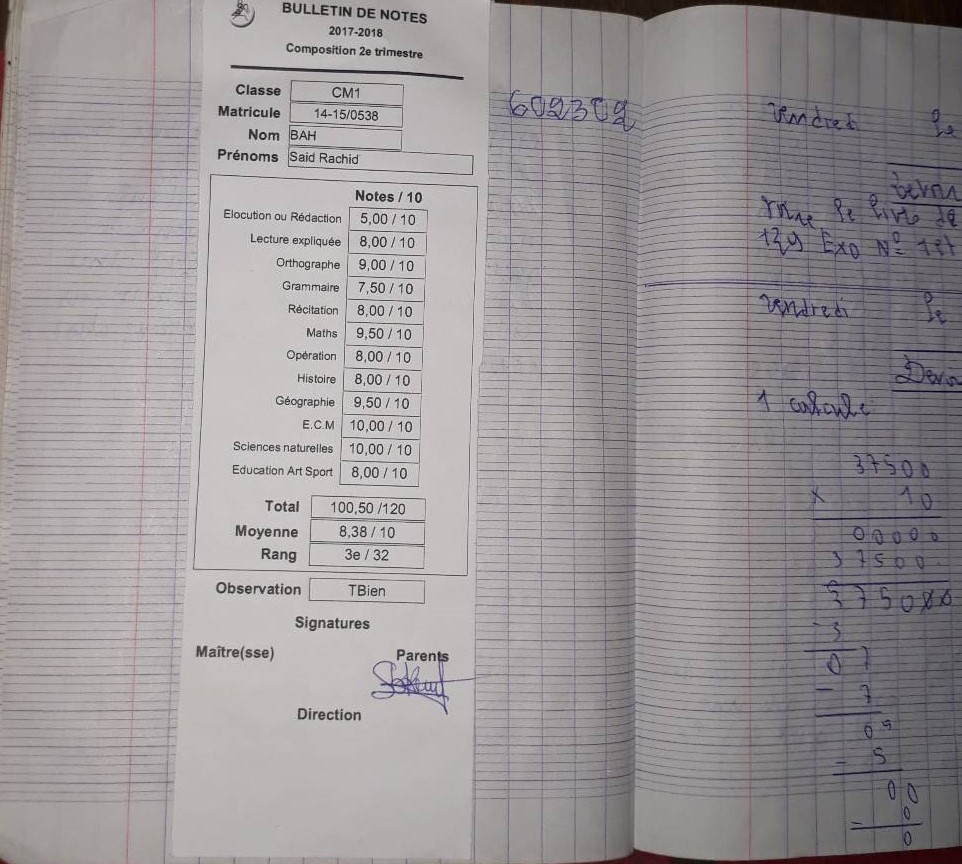 BULLETIN DE NOTES
2017-2018
Composition 2e trimestre
Classe CM1
Matricule 14-15/0538
Nom BAH
Prénoms Said Rachid
Notes / 10
Elocution ou Rédaction 5,00 / 10
Lecture expliquée 8,00 / 10
Orthographe 9,00 / 10
Grammaire 7,50 / 10
Récitation 8,00 / 10
Maths 9,50 / 10
Opération 8,00 / 10
Histoire 8,00 / 10
Géographie 9,50 / 10
E.C.M 10,00 / 10
Sciences naturelles 10,00 / 10
Education Art Sport 8,00 / 10
Total 100,50 /120
Moyenne 8,38 / 10
Rang 3e / 32
Observation TBien
Signatures
Maître(sse) Parents
Direction
602302
Vendredi le
le livre de
129 Exo N° 1et
Vendredi le
Devo
1 calcule
37500
x 10
00000
37500.
375000
- 3
07
- 7
05
- 5
00
- 0
0